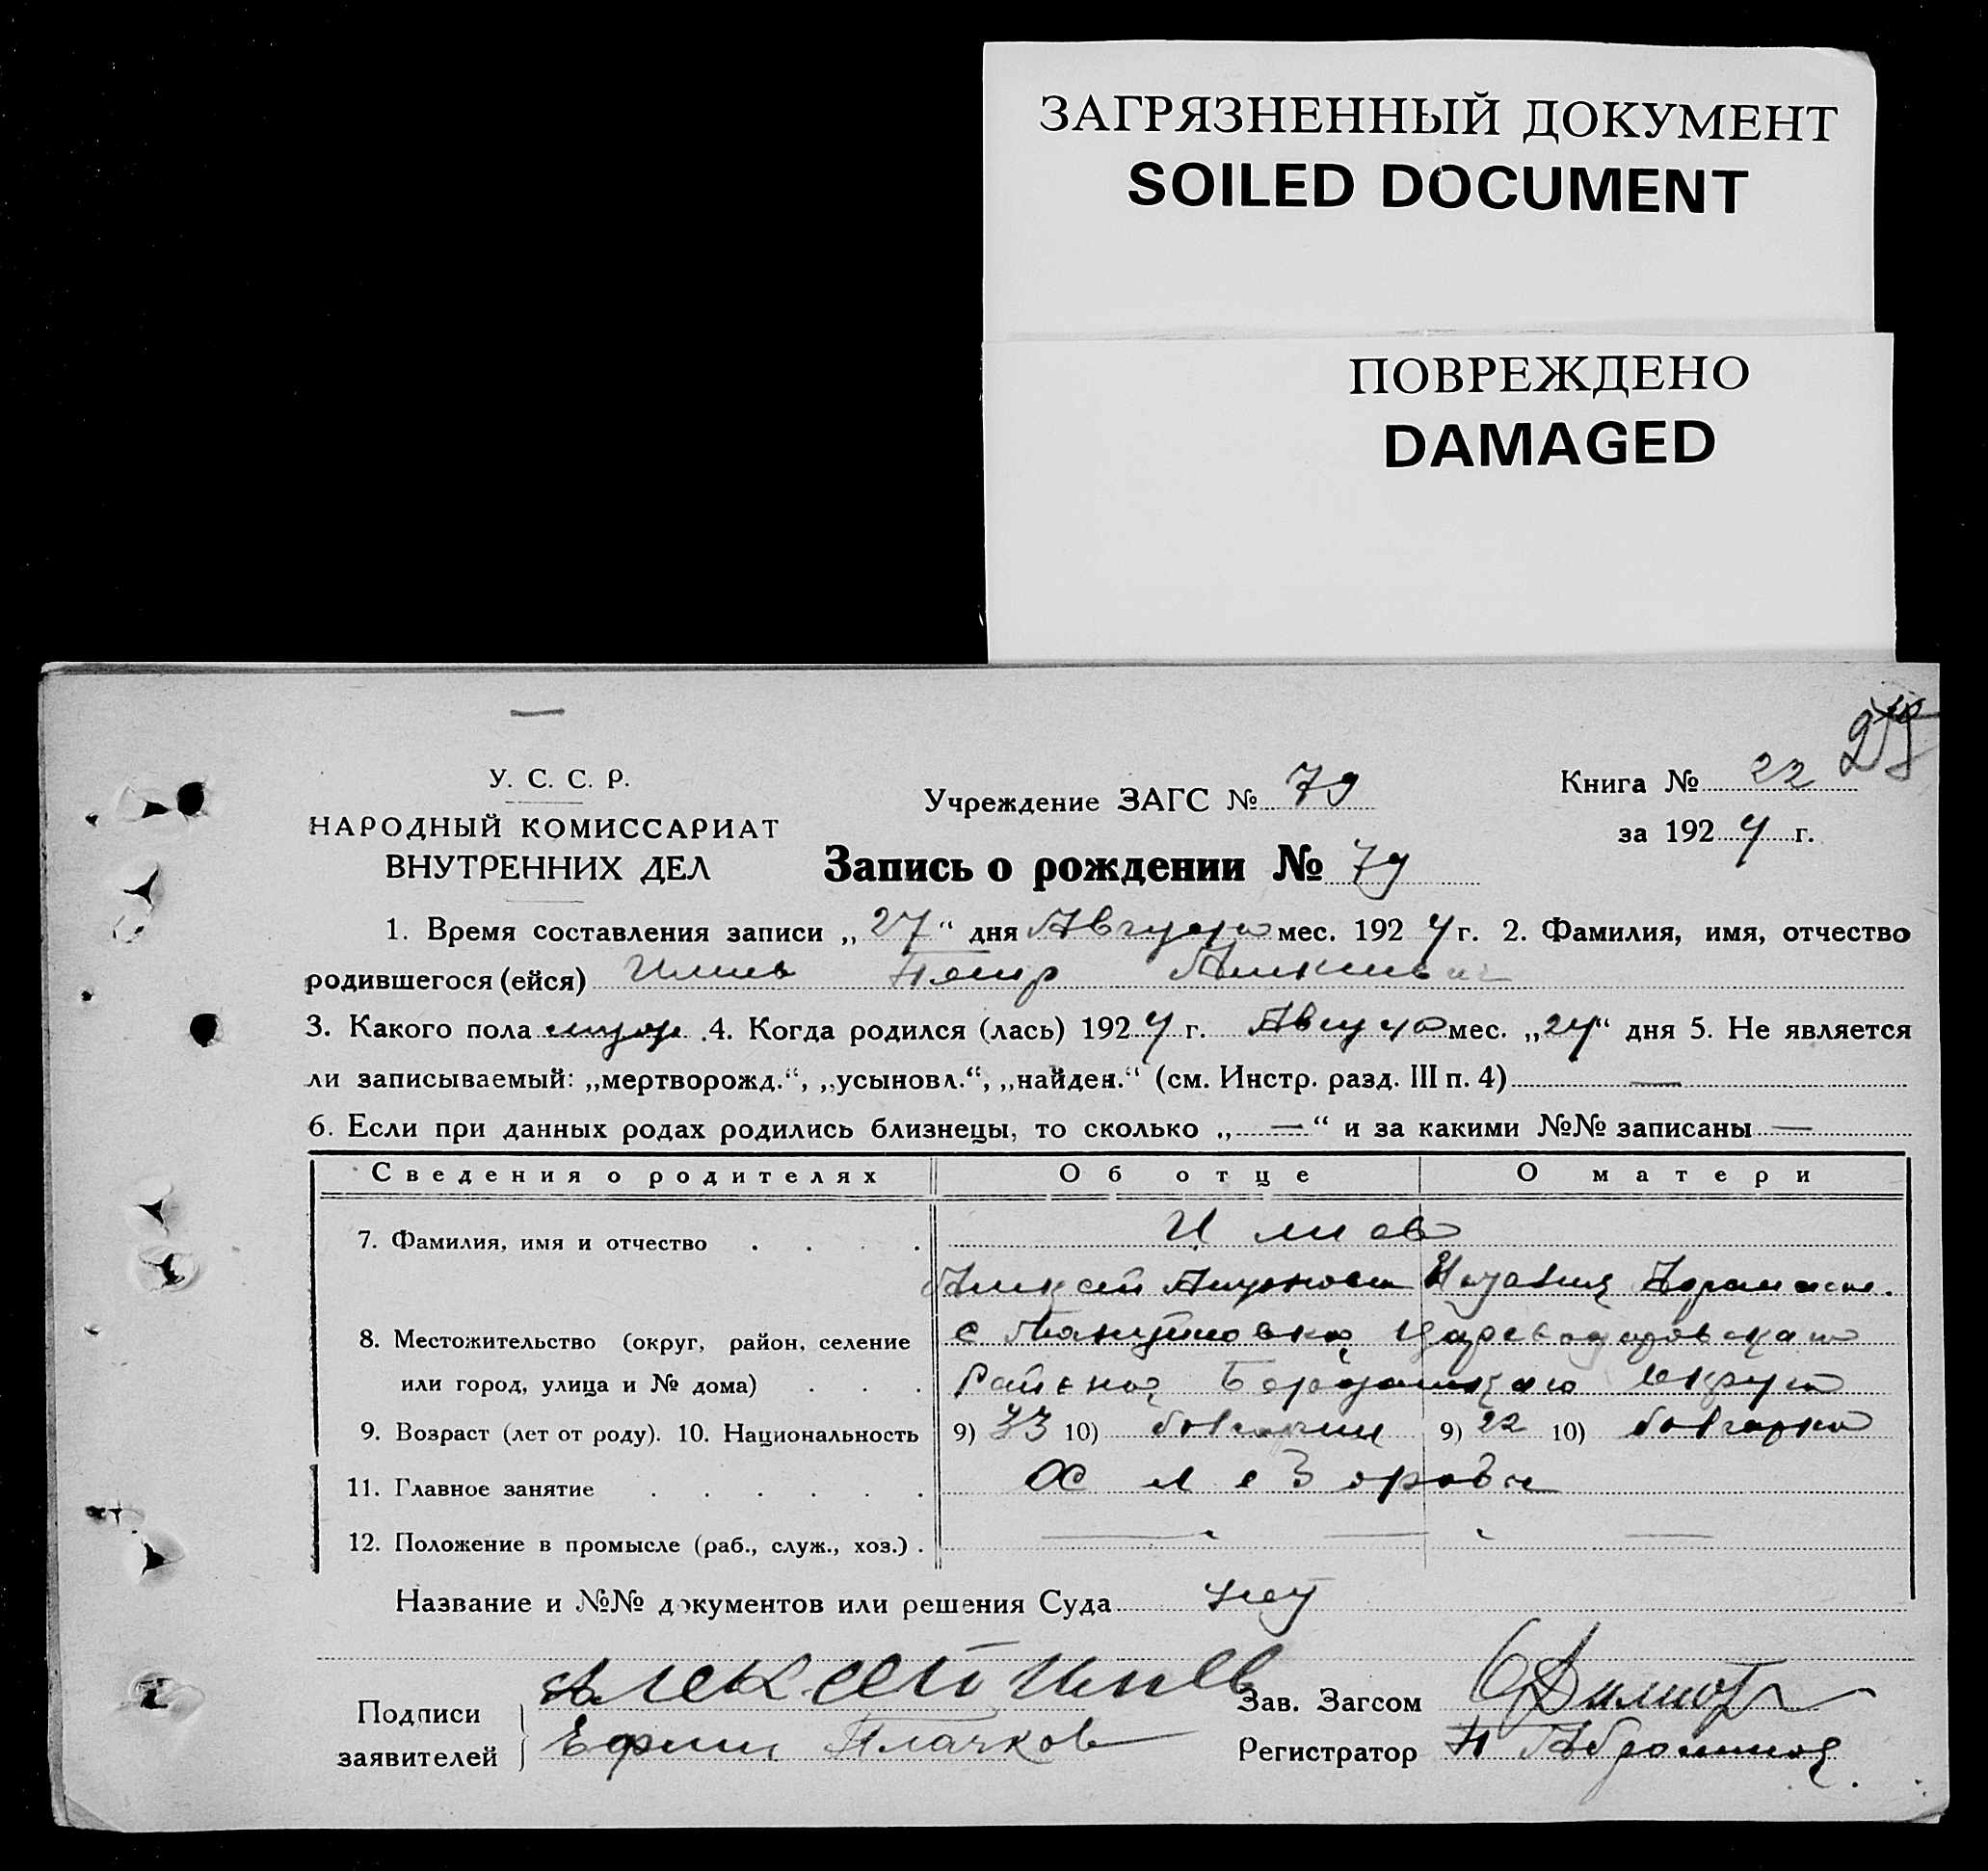 ЗАГРЯЗНЕННЫЙ ДОКУМЕНТ
SOILED DOCUMENT
ПОВРЕЖДЕНО
DAMAGED
У. С. С. Р.
НАРОДНЫЙ КОМИССАРИАТ
ВНУТРЕННИХ ДЕЛ
Учреждение ЗАГС № 79
Книга № 22
за 1924 г.
Запись о рождении № 79
1. Время составления записи „27“ дня Августа мес. 1924 г. 2. Фамилия, имя, отчество
родившегося (ейся) Илиев Петр
3. Какого пола муж. 4. Когда родился (лась) 1924 г. Августа мес. „24“ дня 5. Не является
ли записываемый: „мертворожд.“, „усыновл.“, „найден.“ (см. Инстр. разд. III п. 4) —
6. Если при данных родах родились близнецы, то сколько „—“ и за какими №№ записаны —
Сведения о родителях Об отце О матери
7. Фамилия, имя и отчество
Илиев
8. Местожительство (округ, район, селение
или город, улица и № дома)
Района Бердянского округа
9. Возраст (лет от роду). 10. Национальность 9) 33 10) болгарин 9) 22 10) болгарка
11. Главное занятие Хлебороб
12. Положение в промысле (раб., служ., хоз.) — —
Название и №№ документов или решения Суда нет
Подписи заявителей
Алексей Илиев
Ефим Плачков
Зав. Загсом
Регистратор